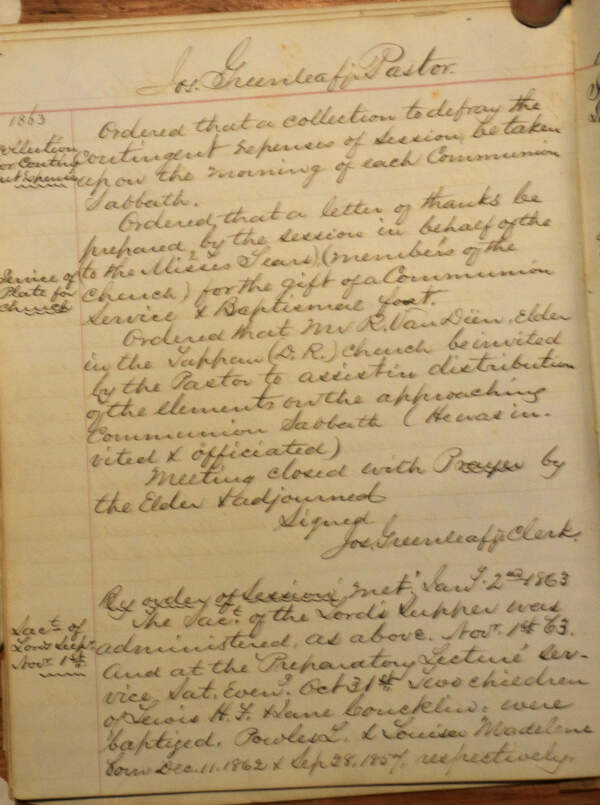 Jos. Greenleaf jr Pastor.
1863
Collection
for Contin
ent Expense
Ordered that a collection to defray the
Contingent Expenses of Session, be taken
up on the Morning of each Communion
Sabbath.
Ordered that a letter of thanks be
prepared, by the session in behalf of the
to the Misses Sears, (members of the
Church) for the gift of a Communion
Service & Baptismal font.
Service of
Plate for
Church
Ordered that Mr R. Van Dien, Elder
in the Tappan (D. R.) church be invited
by the Pastor to assist in distribution
of the Elements on the approaching
Communion Sabbath (He was in-
vited & officiated)
Meeting closed with Prayer by
the Elder & adjourned
Signed
Jos. Greenleaf jr Clerk.
By order of Session met, Jany. 2nd 1863
Sact. of
Lord's Supr.
Novr 1st.
The Sact. of the Lord's Supper was
administered, as above. Novr. 1st 63.
And at the Preparatory Lecture ser-
vice, Sat. Eveng. Oct 31st. Two children
of Lewis H. F. & Jane Concklin, were
baptized. Powles L. & Louisa Madelene
born Dec. 11. 1862 & Sep 28. 1857. respectively.